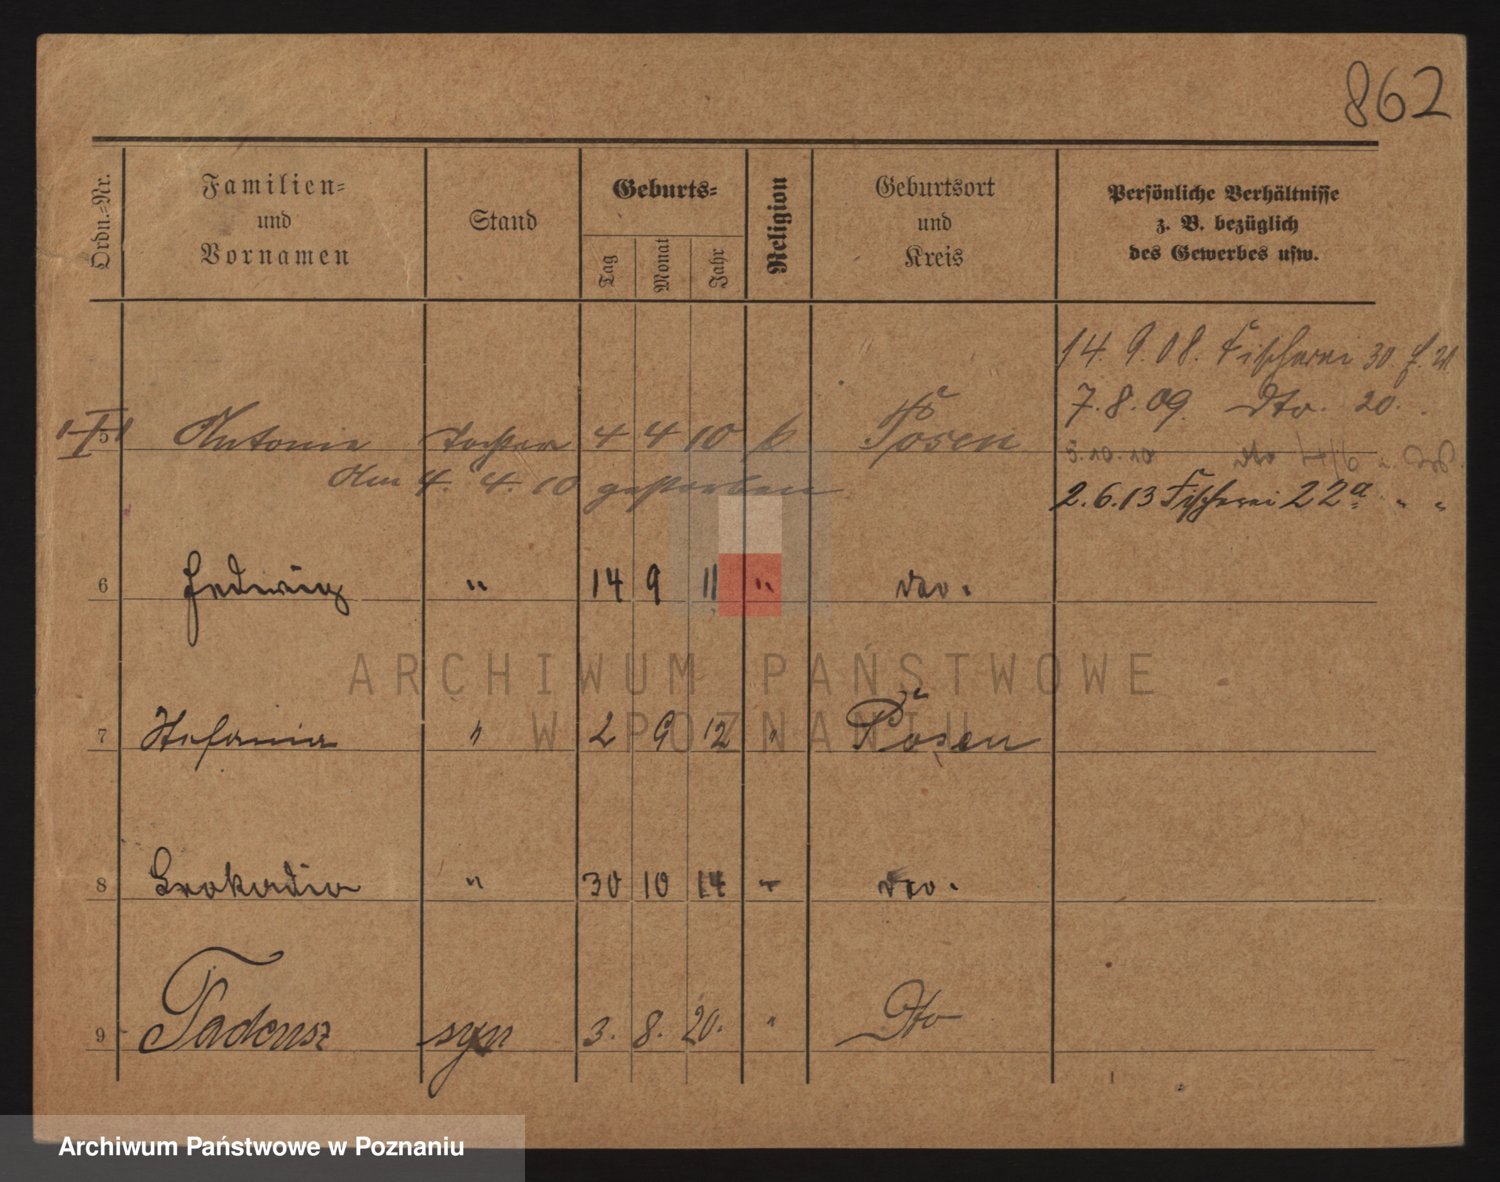 862
Ordn.-Nr.
Familien-
und
Vornamen
Stand
Geburts-
Tag
Monat
Jahr
Religion
Geburtsort
und
Kreis
Persönliche Verhältnisse
z. B. bezüglich
des Gewerbes usw.
14. 9. 08. Fischerei 30.
7. 8. 09. Dto. 20.
5 Antonie Tochter 4 4 10 k. Posen
5.10.10 dto
Am 4. 4. 10 gestorben
2.6.13 Fischerei 22a " "
6 Hedwig " 14 9 11 " dto.
ARCHIWUM PAŃSTWOWE
W POZNANIU
7 Stefania " 2 9 12 " Posen
8 Leokadia " 30 10 14 " dto.
9 Tadeusz syn 3. 8. 20. " Dto
Archiwum Państwowe w Poznaniu